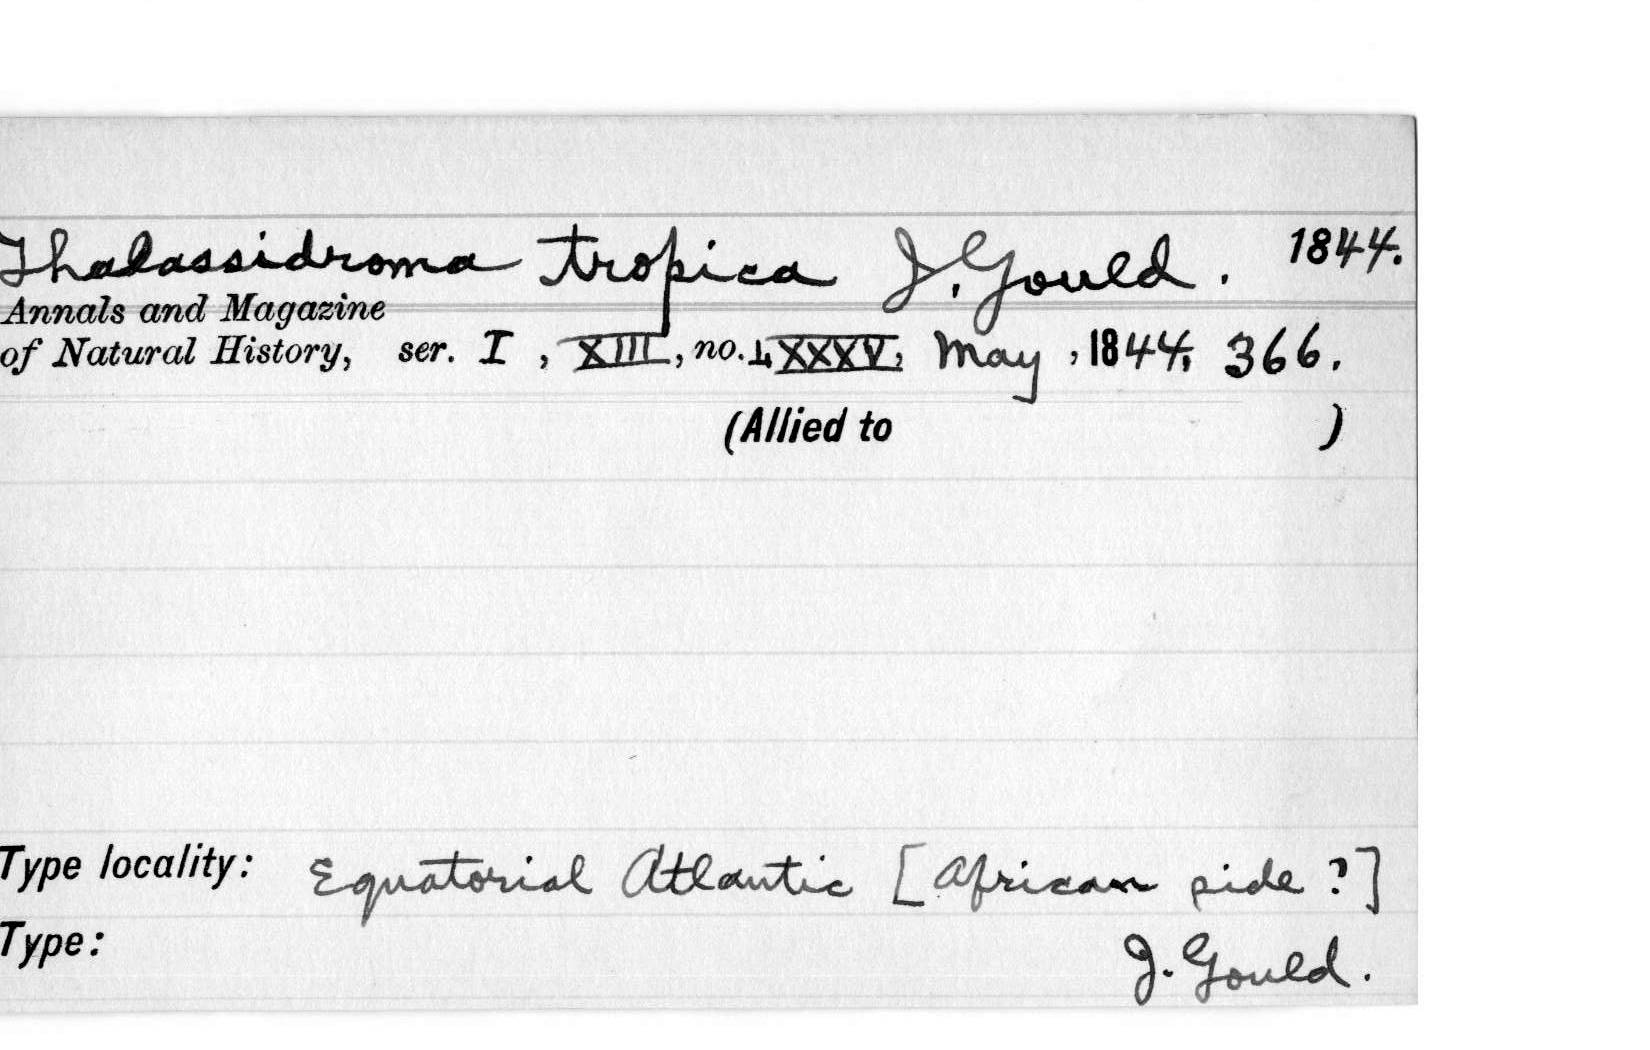 Thalassidroma tropica J. Gould. 1844.
Annals and Magazine
of Natural History, ser. I, XIII, no. LXXXV, May, 1844, 366.
(Allied to )
Type locality: Equatorial Atlantic [African side ?]
Type:
J. Gould.